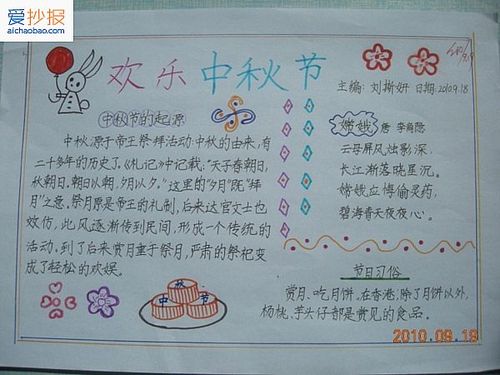 爱抄报
aichaobao.com
欢乐中秋节
主编:刘斯妍 日期:2010.9.18
中秋节的起源
中秋,源于帝王祭拜活动.中秋的由来,有
二千多年的历史了.《礼记》中记载:“天子春朝日,
秋朝日.朝日以朝,夕月以夕。”这里的“夕月”既“拜
月”之意.祭月原是帝王的礼制,后来达官文士也
效仿,此风逐渐传到民间.形成一个传统的
活动,到了后来赏月重于祭月,严肃的祭祀变
成了轻松的欢娱。
嫦娥 唐 李商隐
云母屏风烛影深,
长江渐落晓星沉。
嫦娥应悔偷灵药,
碧海青天夜夜心。
节日习俗
赏月、吃月饼。在香港,除了月饼以外,
杨桃、芋头仔都是常见的食品。
中秋节
2010.09.19